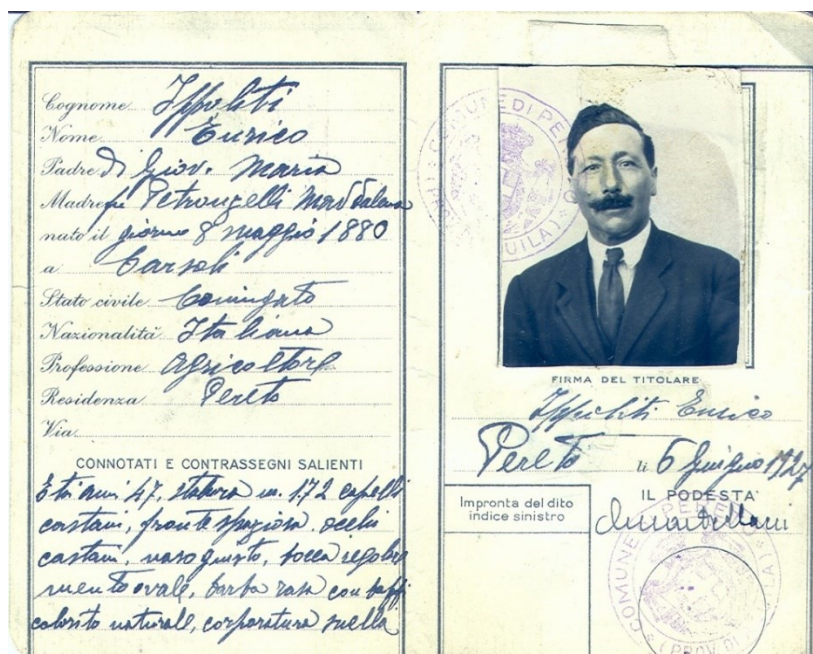 Cognome Ippoliti
Nome Enrico
Padre di Giov. Maria
Madre fu Petrongelli Maddalena
nato il giorno 8 maggio 1880
a Carsoli
Stato civile Coniugato
Nazionalità Italiana
Professione agricoltore
Residenza Pereto
Via
CONNOTATI E CONTRASSEGNI SALIENTI
Età anni 47, statura m. 1.72 capelli
castani, fronte spaziosa, occhi
castani, naso giusto, bocca regolare
mento ovale, barba rasa con baffi
colorito naturale, corporatura snella
COMUNE DI PE
QUILA)
FIRMA DEL TITOLARE
Ippoliti Enrico
Pereto li 6 Giugno 1927
IL PODESTA'
Impronta del dito
indice sinistro
COMUNE PERE
(PROV. DI